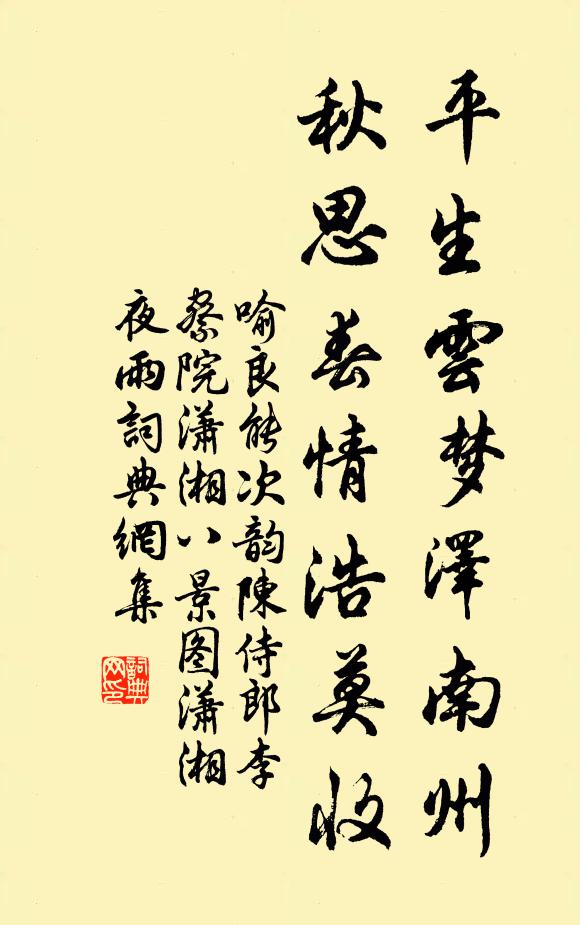 平生雲梦澤南州
秋思春情浩莫收
喻良能次韵陳侍郎李
察院潇湘八景图潇湘
夜雨詞典網集
詞典